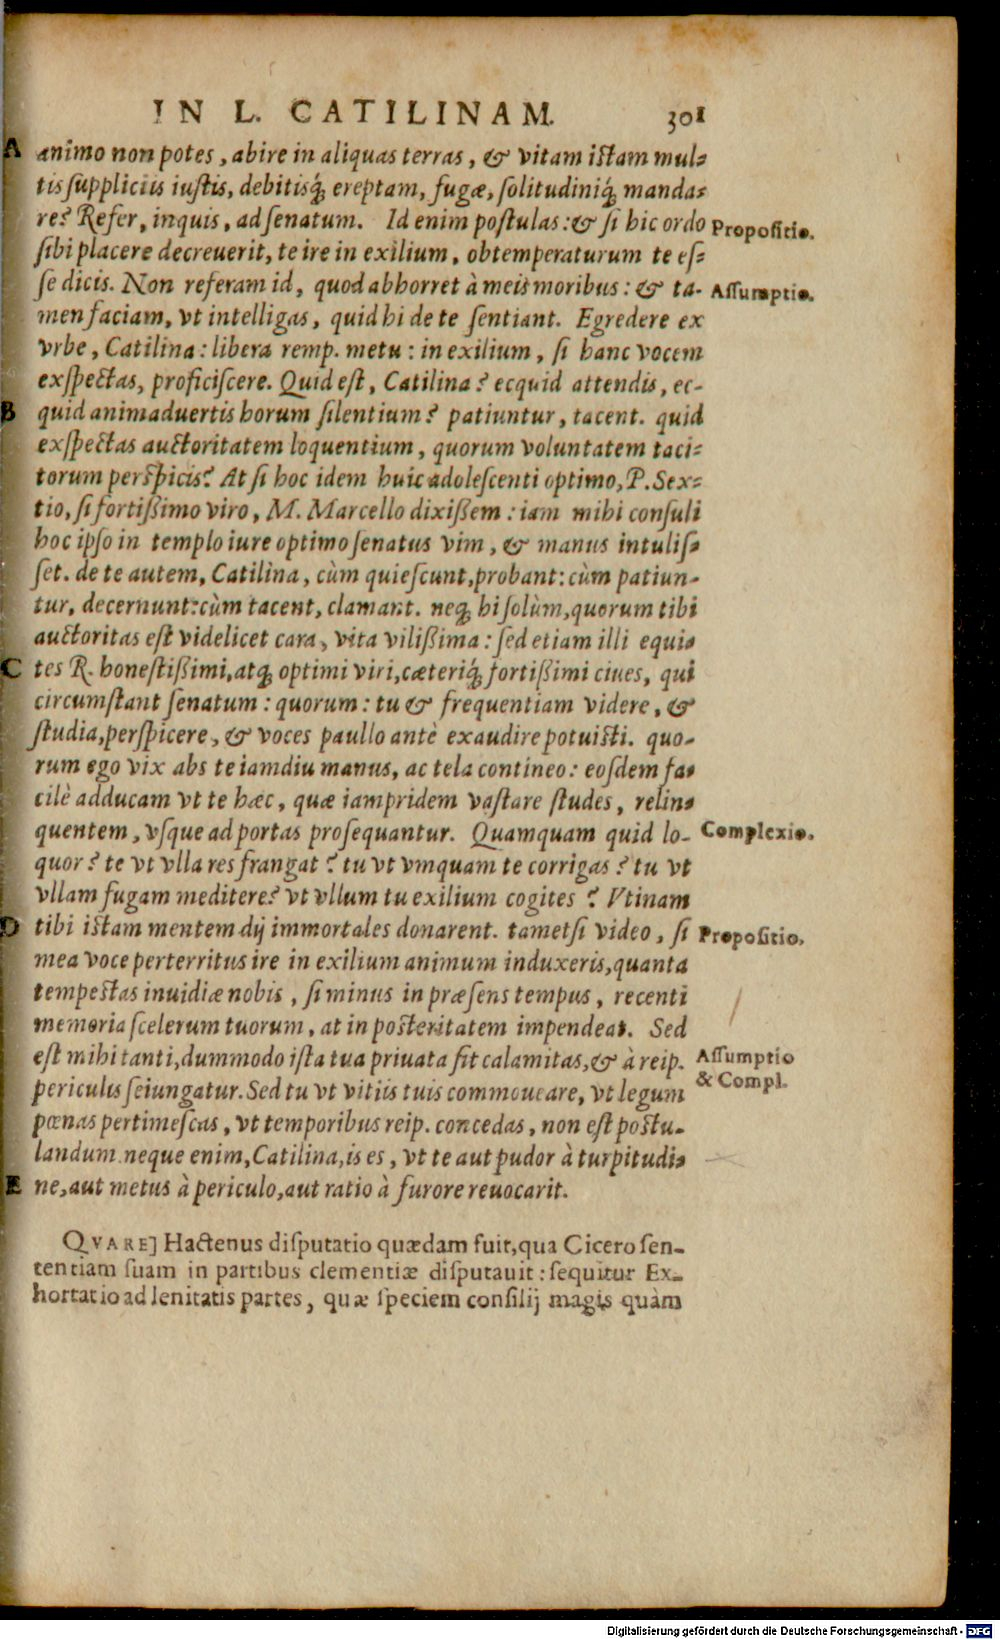 IN L. CATILINAM. 301
A animo non potes, abire in aliquas terras, & vitam istam mul-
tis suppliciis iustis, debitisq́; ereptam, fugæ, solitudiniq́; manda-
re? Refer, inquis, ad senatum. Id enim postulas: & si hic ordo Propositio.
sibi placere decreuerit, te ire in exilium, obtemperaturum te es-
se dicis. Non referam id, quod abhorret à meis moribus: & ta- Assumptio.
men faciam, vt intelligas, quid hi de te sentiant. Egredere ex
vrbe, Catilina: libera remp. metu: in exilium, si hanc vocem
exspectas, proficiscere. Quid est, Catilina? ecquid attendis, ec-
B quid animaduertis horum silentium? patiuntur, tacent. quid
exspectas auctoritatem loquentium, quorum voluntatem taci-
torum perspicis? At si hoc idem huic adolescenti optimo, P. Sex-
tio, si fortißimo viro, M. Marcello dixißem: iam mihi consuli
hoc ipso in templo iure optimo senatus vim, & manus intulis-
set. de te autem, Catilina, cùm quiescunt, probant: cùm patiun-
tur, decernunt: cùm tacent, clamant. neq́; hi solùm, quorum tibi
auctoritas est videlicet cara, vita vilißima: sed etiam illi equi-
C tes R. honestißimi, atq́; optimi viri, cæteriq́; fortißimi ciues, qui
circumstant senatum: quorum: tu & frequentiam videre, &
studia, perspicere, & voces paullo antè exaudire potuisti. quo-
rum ego vix abs te iamdiu manus, ac tela contineo: eosdem fa-
cilè adducam vt te hæc, quæ iampridem vastare studes, relin-
quentem, vsque ad portas prosequantur. Quamquam quid lo- Complexio.
quor? te vt vlla res frangat? tu vt vmquam te corrigas? tu vt
vllam fugam meditere? vt vllum tu exilium cogites? Vtinam
D tibi istam mentem dij immortales donarent. tametsi video, si Propositio.
mea voce perterritus ire in exilium animum induxeris, quanta
tempestas inuidiæ nobis, si minus in præsens tempus, recenti
memoria scelerum tuorum, at in posteritatem impendeat. Sed
est mihi tanti, dummodo ista tua priuata sit calamitas, & à reip. Assumptio
periculis seiungatur. Sed tu vt vitiis tuis commoueare, vt legum & Compl.
pœnas pertimescas, vt temporibus reip. concedas, non est postu-
landum. neque enim, Catilina, is es, vt te aut pudor à turpitudi-
E ne, aut metus à periculo, aut ratio à furore reuocarit.
QVARE] Hactenus disputatio quædam fuit, qua Cicero sen-
tentiam suam in partibus clementiæ disputauit: sequitur Ex-
hortatio ad lenitatis partes, quæ speciem consilij magis quàm
Digitalisierung gefördert durch die Deutsche Forschungsgemeinschaft - DFG